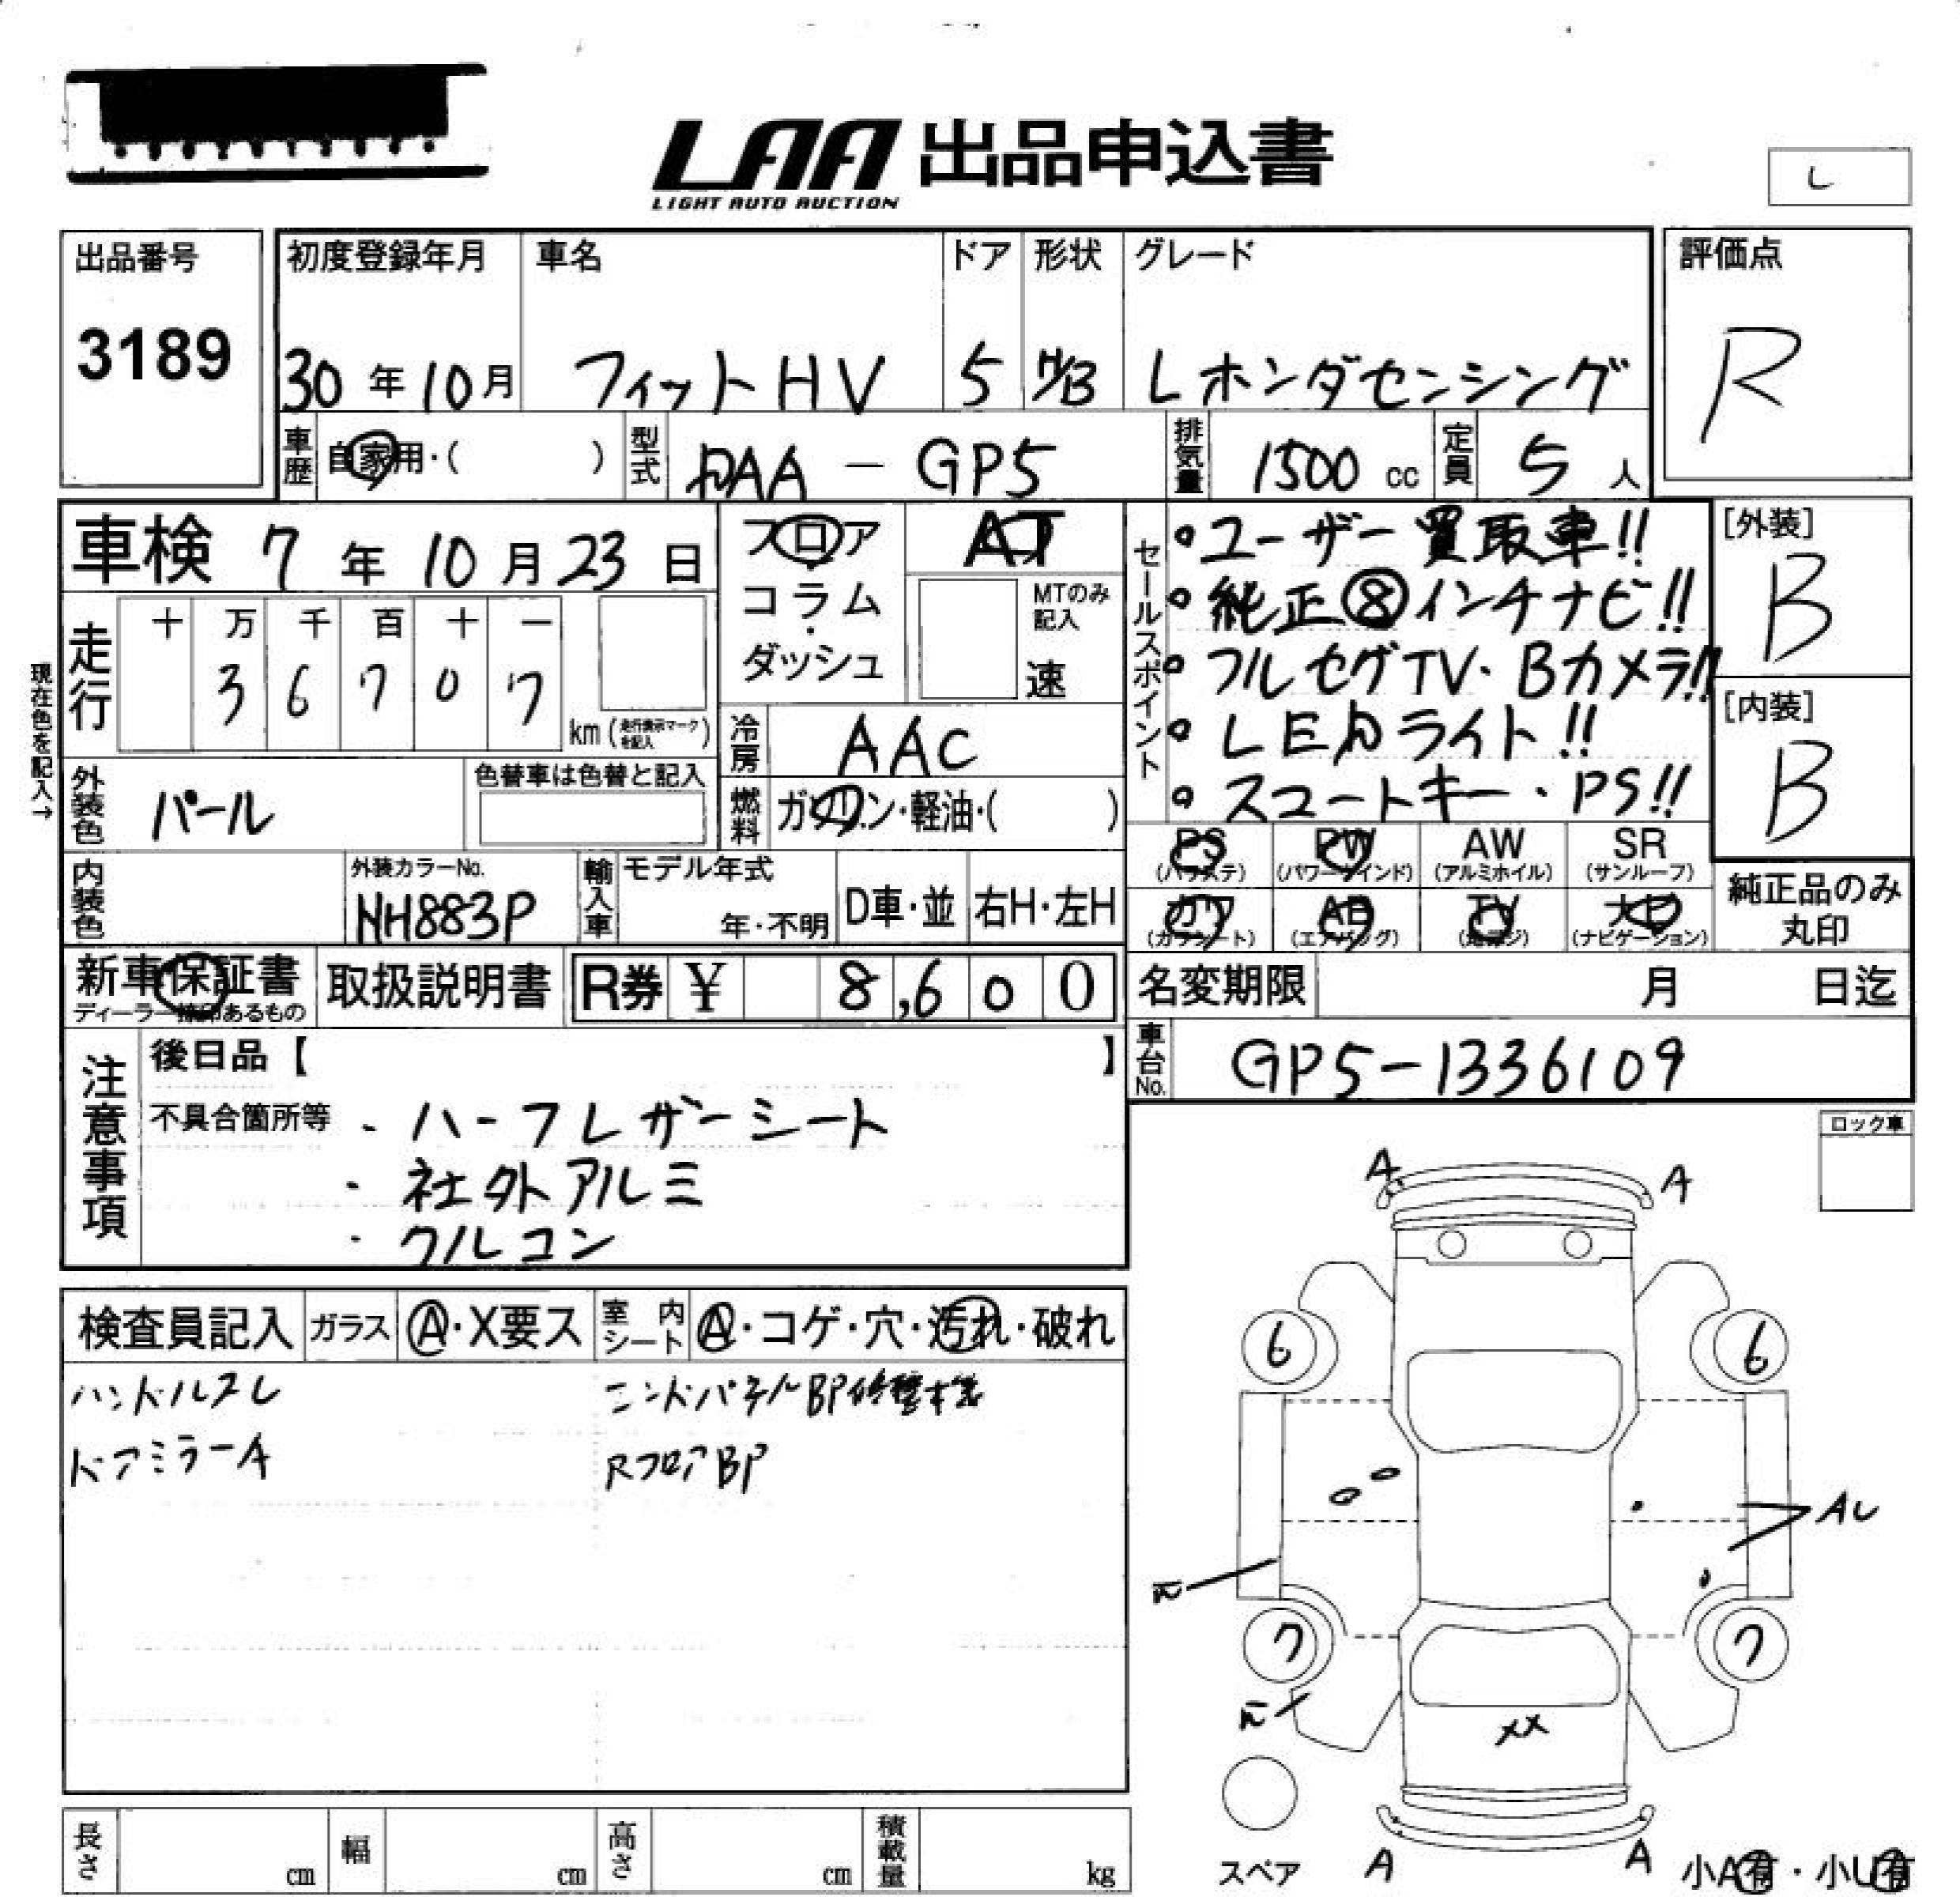 LAA 出品申込書
LIGHT AUTO AUCTION
し
出品番号
3189
初度登録年月
30年10月
車名
フィットHV
ドア
5
形状
H/B
グレード
Lホンダセンシング
評価点
R
車歴
自家用・( )
型式
DAA - GP5
排気量
1500 cc
定員
5 人
車検 7年10月23日
フロア
コラム
・
ダッシュ
AT
MTのみ
記入
速
セールスポイント
・ユーザー買取車!!
・純正⑧インチナビ!!
・フルセグTV・Bカメラ!!
・LEDライト!!
・スマートキー・PS!!
[外装]
B
[内装]
B
現在色を記入→
走行
十 万 千 百 十 一
3 6 7 0 7
km (走行表示マークを記入)
冷房
AAC
外装色
パール
色替車は色替と記入
燃料
ガソリン・軽油・( )
PS
(パワステ)
PW
(パワーウインド)
AW
(アルミホイル)
SR
(サンルーフ)
カワ
(カワシート)
AB
(エアバッグ)
TV
(地デジ)
ナビ
(ナビゲーション)
純正品のみ
丸印
内装色
外装カラーNo.
NH883P
輸入車
モデル年式
年・不明
D車・並
右H・左H
新車保証書
ディーラー捺印あるもの
取扱説明書
R券 ¥ 8,600
名変期限 月 日迄
車台No.
GP5-1336109
注意事項
後日品【 】
不具合箇所等
・ハーフレザーシート
・社外アルミ
・クルコン
ロック車
検査員記入
ガラス
Ⓐ・X要ス
室内シート
Ⓐ・コゲ・穴・汚れ・破れ
ハンドルスレ
ドアミラーA
エンドパネルBP修整有
RフロアBP
A
A
6
6
Aし
7
7
××
A
A
スペア
小A有・小U有
長さ cm
幅 cm
高さ cm
積載量 kg